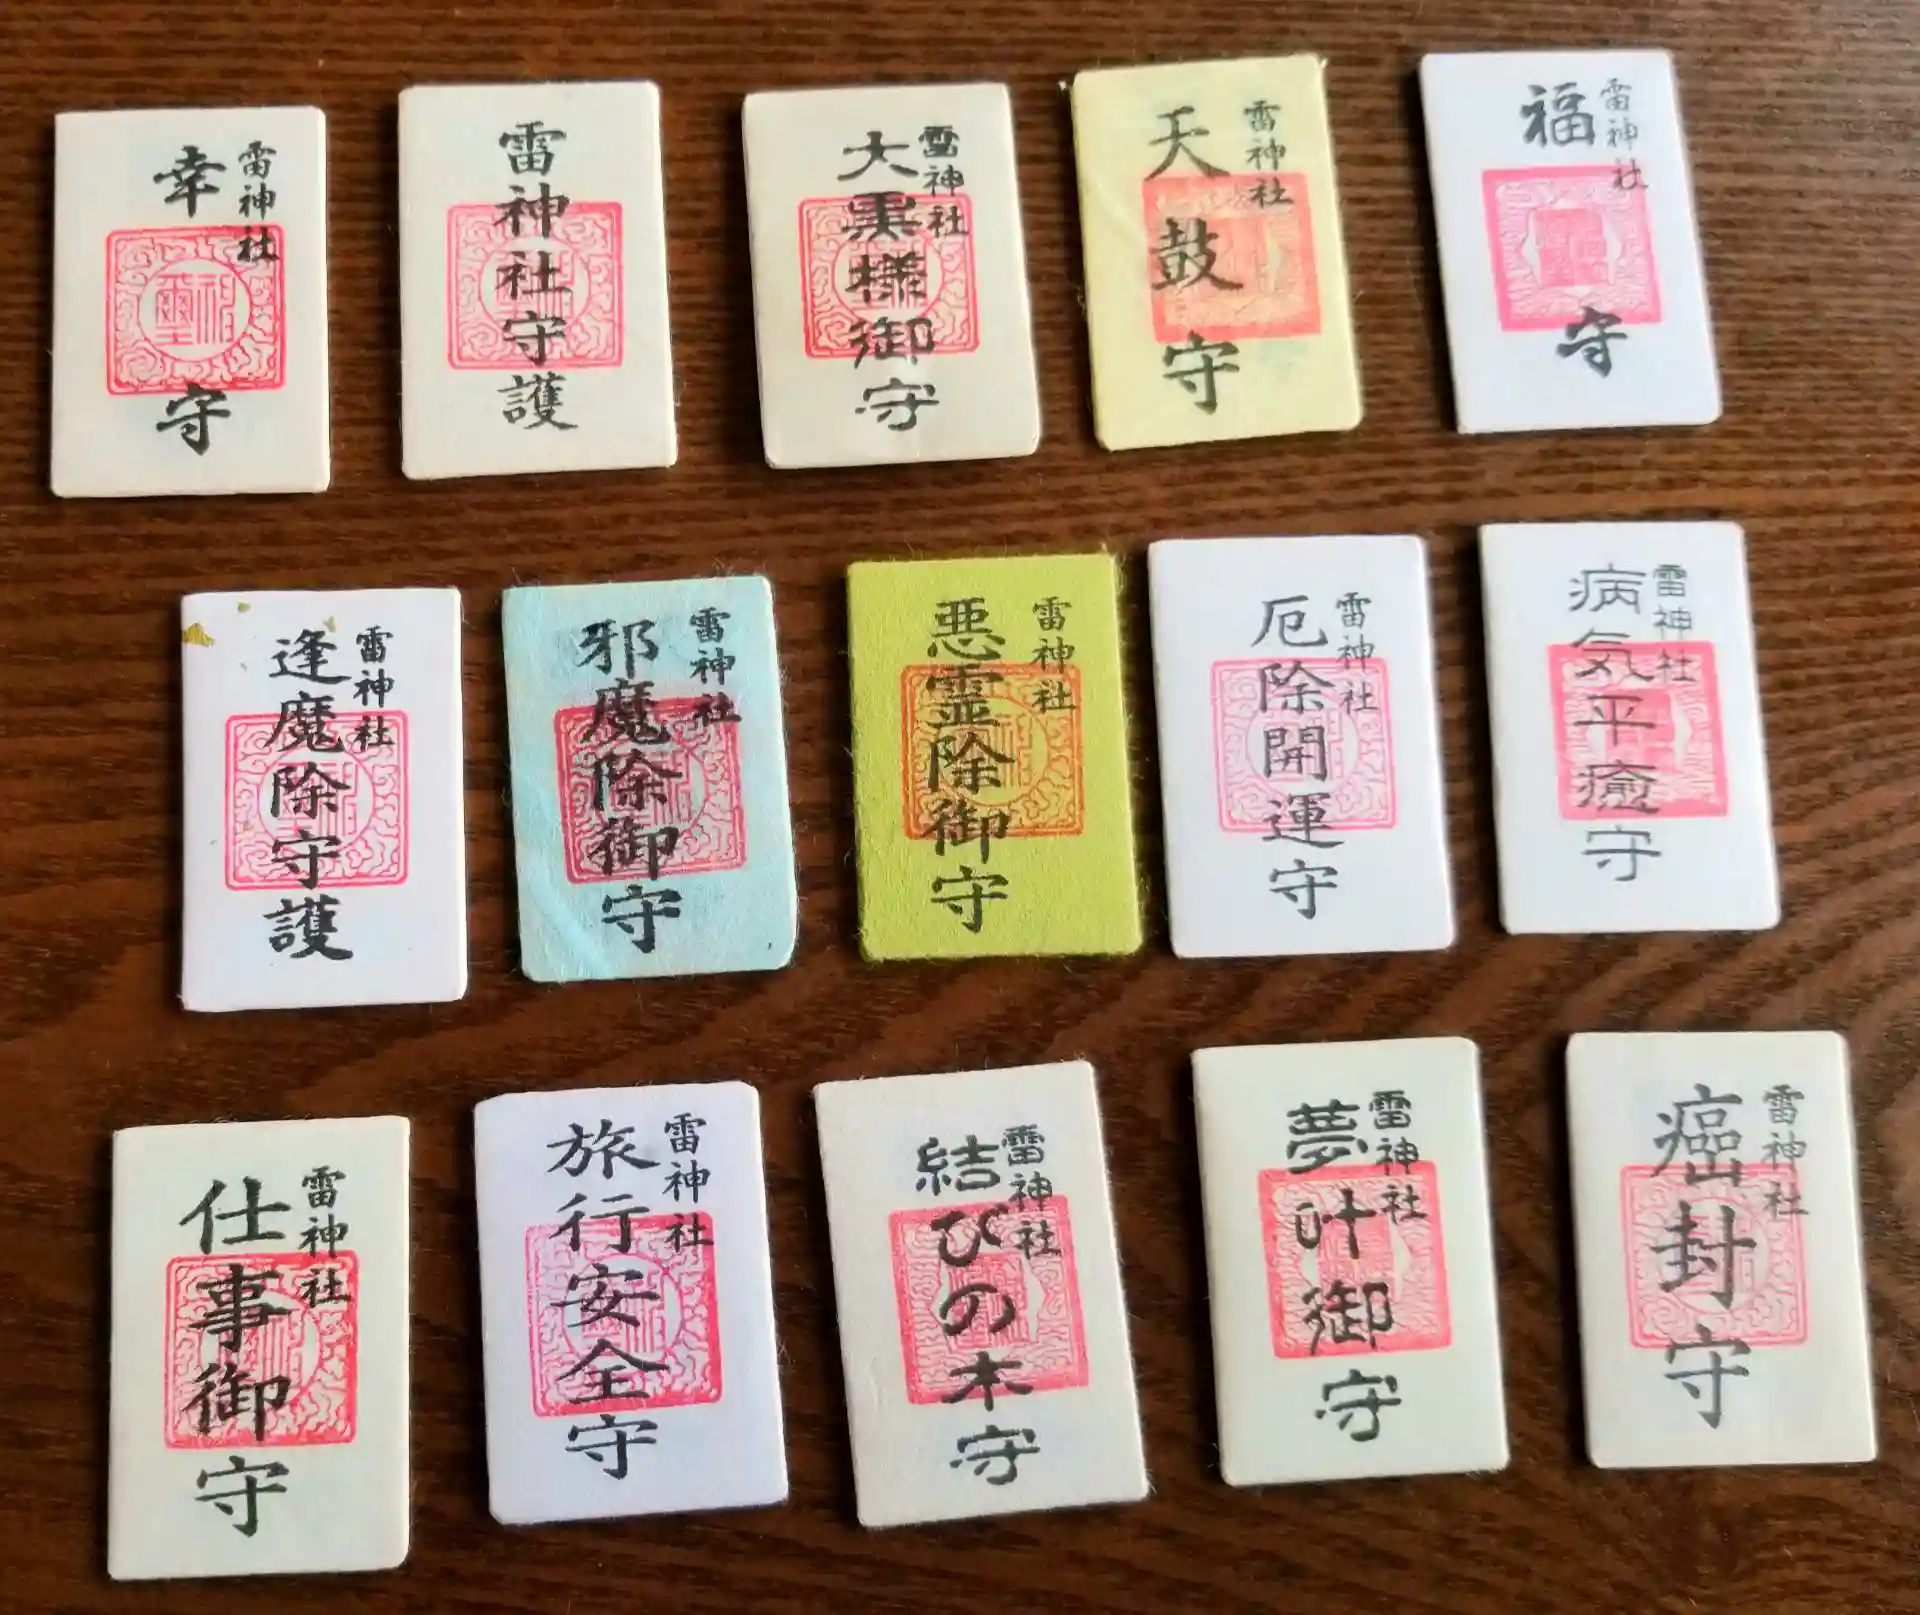 雷神社
幸守
雷神社守護
雷神社
大黒様御守
雷神社
天鼓守
雷神社
福守
雷神社
逢魔除守護
雷神社
邪魔除御守
雷神社
悪霊除御守
雷神社
厄除開運守
雷神社
病気平癒守
雷神社
仕事御守
雷神社
旅行安全守
雷神社
結びの木守
雷神社
夢叶御守
雷神社
癌封守